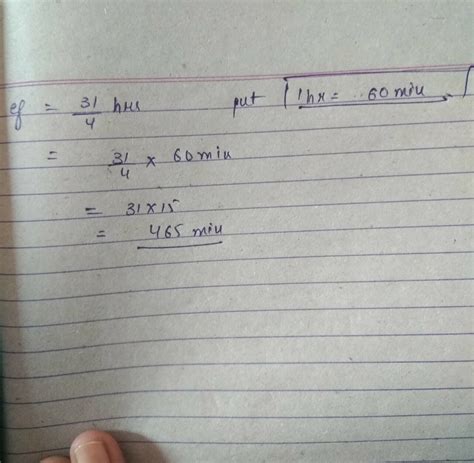 ef = 31/4 hrs put 1 hr = 60 min
= 31/4 × 60 min
= 31×15
= 465 min